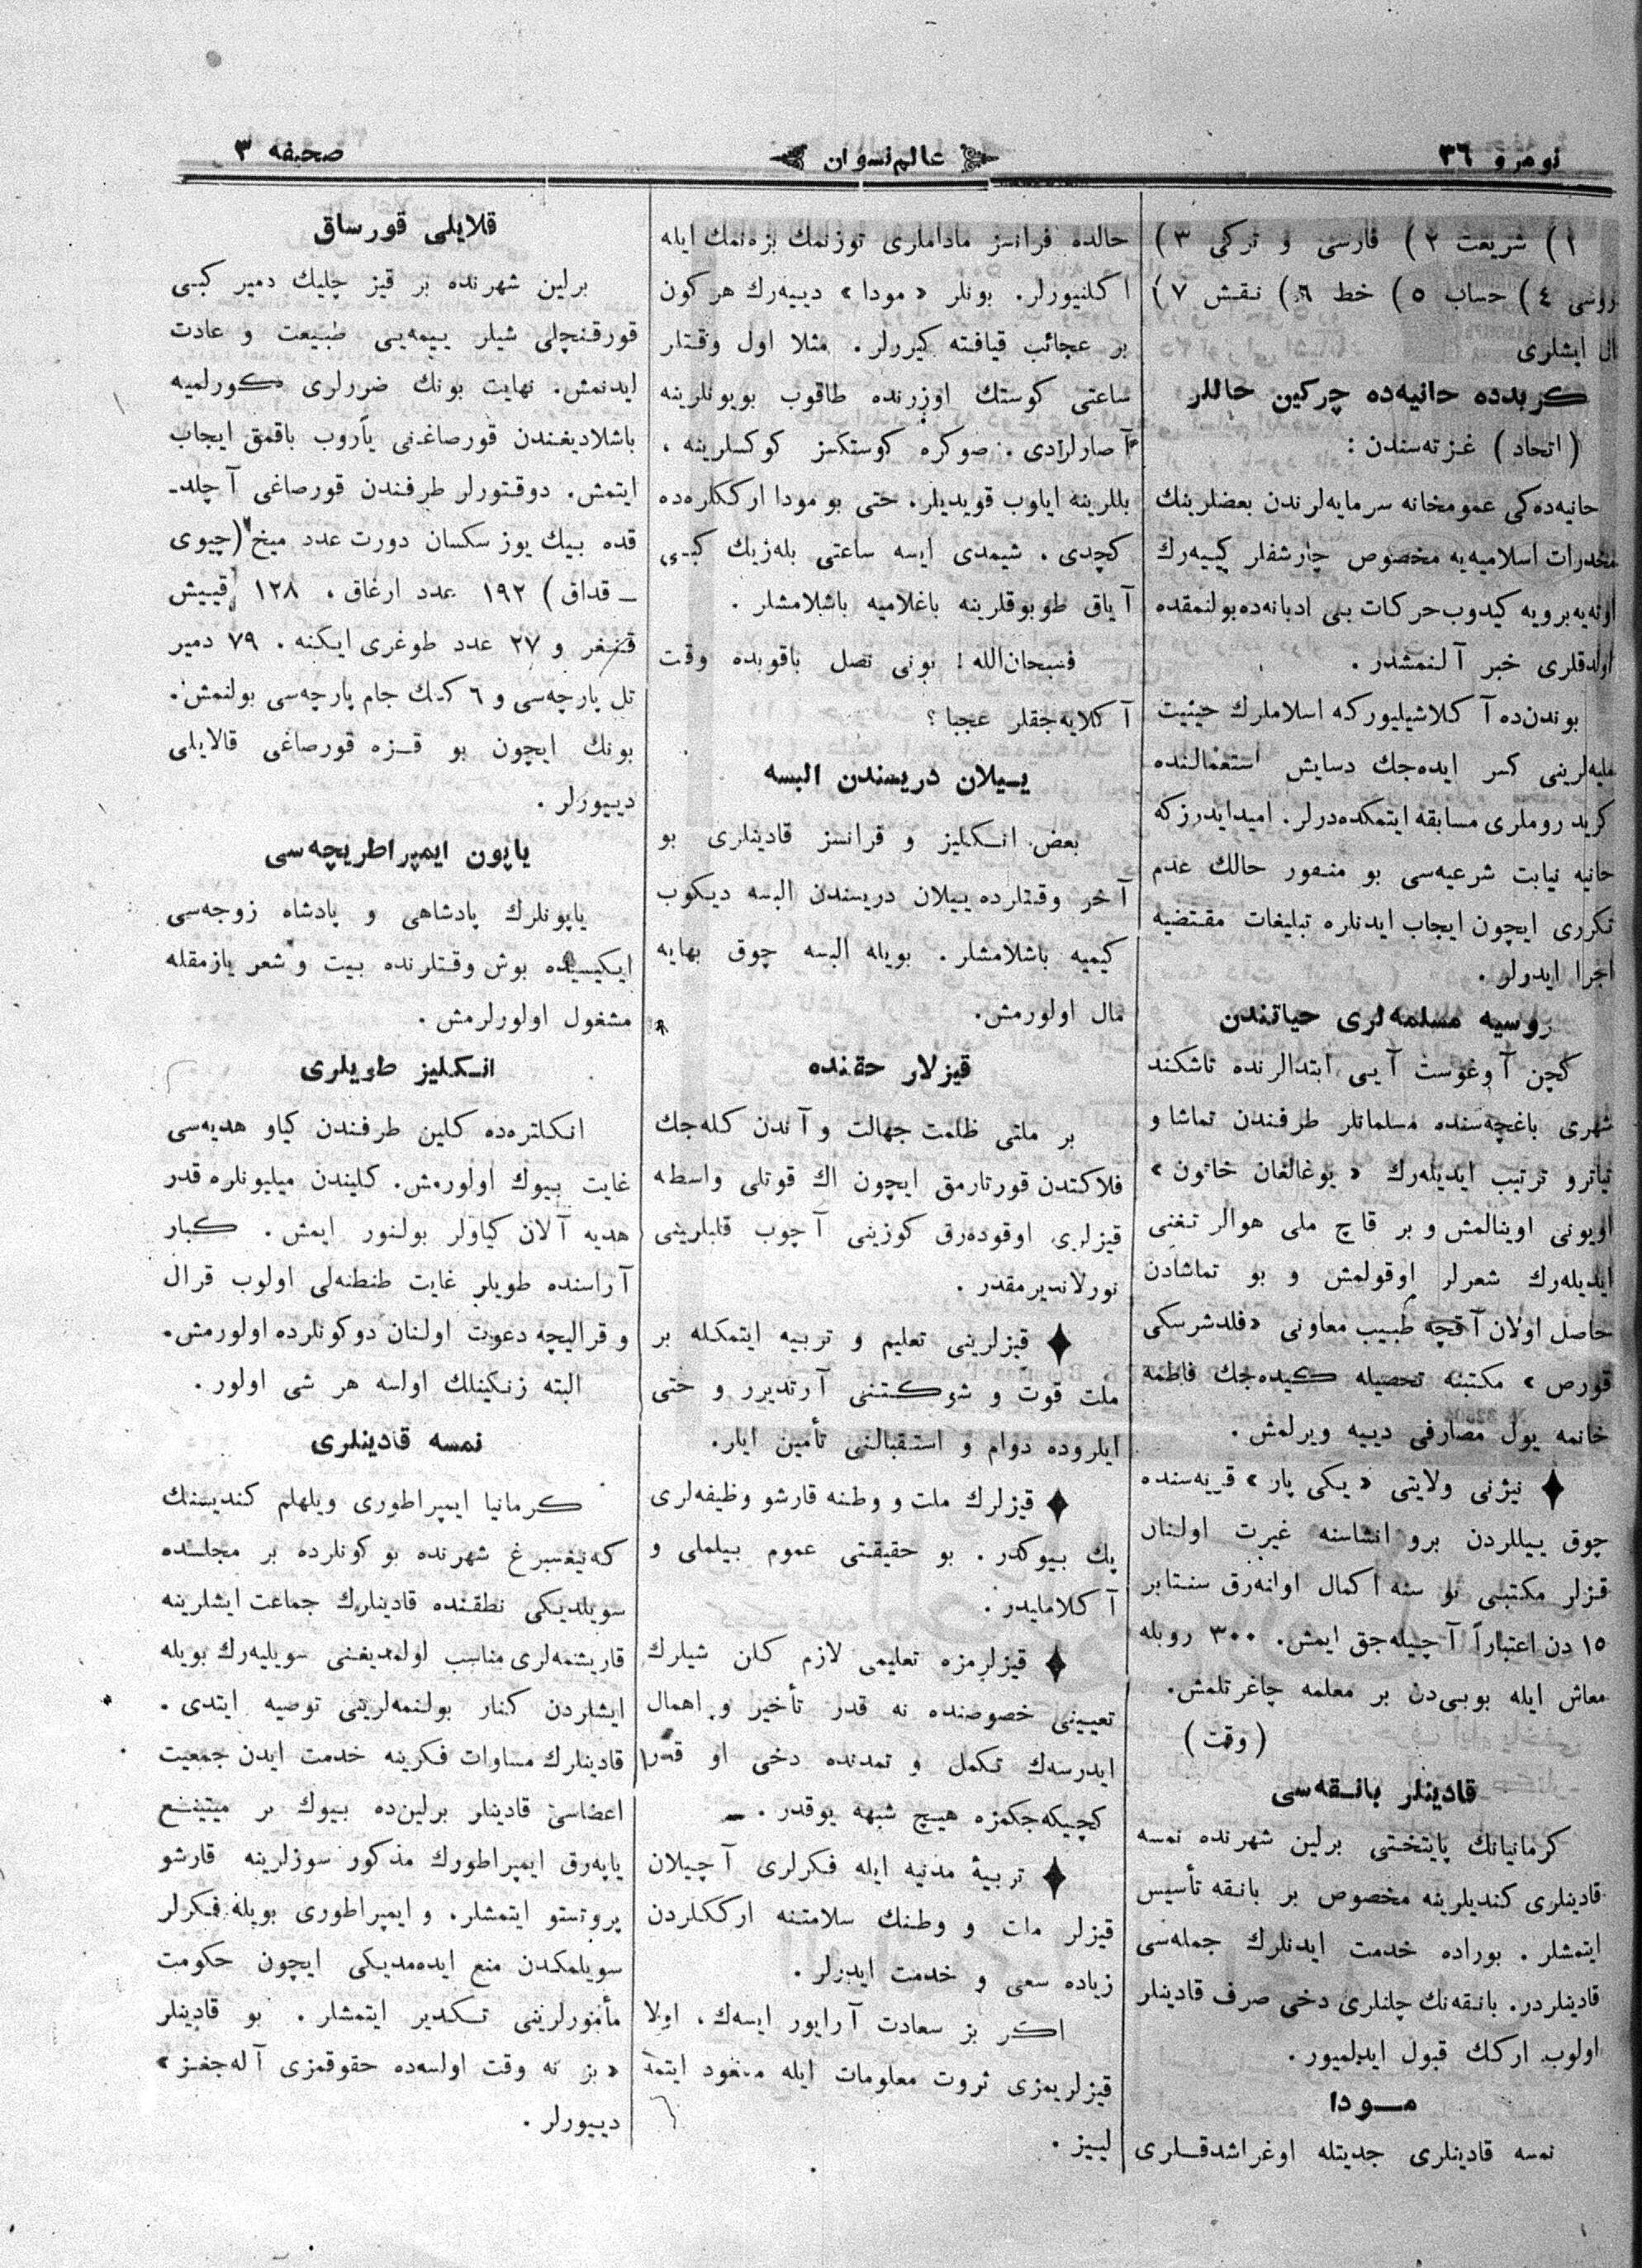 نومرو ٣٦
عالم نسوان
صحيفه ٣
١) شريعت ٢) فارسى و تركى ٣)
روسى ٤) حساب ٥) خط ٦) نقش ٧)
ال ايشلرى
كريدده حانيه‌ده چركين حاللر
(اتحاد) غزته‌سندن:
حانيه‌ده‌كى عمومخانه سرمايه‌لرندن بعضلرينك
مخدرات اسلاميه‌يه مخصوص چارشفلر كييه‌رك
اوته‌يه‌برويه كيدوب حركات بى ادبانه‌ده بولنمقده
اولدقلرى خبر آلنمشدر.
بوندن‌ده آكلاشيليوركه اسلاملرك حيثيت
مليه‌لرينى كسر ايده‌جك دسايس استعمالنده
كريد روملرى مسابقه ايتمكده‌درلر. اميدايدرزكه
حانيه نيابت شرعيه‌سى بو منفور حالك عدم
تكررى ايچون ايجاب ايدنلره تبليغات مقتضيه
اجرا ايدرلر.
روسيه مسلمه‌لرى حياتندن
كچن آوغوست آيى ابتدالرنده تاشكند
شهرى باغچه‌سنده مسلمانلر طرفندن تماشا و
تياترو ترتيب ايديله‌رك «يوغالغان خاتون»
اويونى اوينالمش و بر قاچ ملى هوالر تغنى
ايديله‌رك شعرلر اوقولمش و بو تماشادن
حاصل اولان آقچه طبيب معاونى «فلدشرسكى
قورص» مكتبنه تحصيله كيده‌جك فاطمه
خانمه يول مصارفى دييه ويرلمش.
نيژنى ولايتى «يكى پار» قريه‌سنده
چوق ييللردن برو انشاسنه غيرت اولنان
قزلر مكتبى بو سنه اكمال اولنه‌رق سنتابر
١٥ دن اعتباراً آچيله‌جق ايمش. ٣٠٠ روبله
معاش ايله بوبى‌دن بر معلمه چاغرتلمش.
(وقت)
قادينلر بانقه‌سى
كرمانيانك پايتختى برلين شهرنده نمسه
قادينلرى كنديلرينه مخصوص بر بانقه تأسيس
ايتمشلر. بوراده خدمت ايدنلرك جمله‌سى
قادينلردر. بانقه‌نك چلنلرى دخى صرف قادينلر
اولوب اركك قبول ايدلميور.
مودا
نمسه قادينلرى جديتله اوغراشدقلرى
حالده فرانسز ماداملرى توزنمك بزه‌نمك ايله
اكلنيورلر. بونلر «مودا» دييه‌رك هر كون
بر عجائب قيافته كيررلر. مثلا اول وقتلر
ساعتى كوستك اوزرنده طاقوب بويونلرينه
آصارلردى. صوكره كوستكسز كوكسلرينه،
بللرينه اياوب قويديلر. حتى بو مودا ارككلره‌ده
كچدى. شيمدى ايسه ساعتى بله‌زيك كبى
آياق طوبوقلرينه باغلاميه باشلامشلر.
فسبحان‌الله! بونى نصل باقوبده وقت
آكلايه‌جقلر عجبا؟
ييلان دريسندن البسه
بعض انكليز و فرانسز قادينلرى بو
آخر وقتلرده ييلان دريسندن البسه ديكوب
كيميه باشلامشلر. بويله البسه چوق بهايه
مال اولورمش.
قيزلار حقنده
بر ملتى ظلمت جهالت و آندن كله‌جك
فلاكتدن قورتارمق ايچون اك قوتلى واسطه
قيزلرى اوقوده‌رق كوزينى آچوب قلبلرينى
نورلانديرمقدر.
قيزلرينى تعليم و تربيه ايتمكله بر
ملت قوت و شوكتنى آرتديرر و حتى
ايلروده دوام و استقبالنى تأمين ايلر.
قيزلرك ملت و وطنه قارشو وظيفه‌لرى
پك بيوكدر. بو حقيقتى عموم بيلملى و
آكلامليدر.
قيزلرمزه تعليمى لازم كلن شيلرك
تعيينى خصوصنده نه قدر تأخير و اهمال
ايدرسه‌ك تكمل و تمدنده دخى او قدر
كچيكه‌جكمزه هيچ شبهه يوقدر.
تربيهٔ مدنيه ايله فكرلرى آچيلان
قيزلر ملت و وطنك سلامتنه ارككلردن
زياده سعى و خدمت ايدرلر.
اكر بز سعادت آرايور ايسه‌ك، اولا
قيزلريمزى ثروت معلومات ايله مسعود ايتمه
لييز.
قلايلى قورساق
برلين شهرنده بر قيز چليك دمير كبى
قورقنچلى شيلر ييمه‌يى طبيعت و عادت
ايدنمش. نهايت بونك ضررلرى كورلميه
باشلاديغندن قورصاغنى ياروب باقمق ايجاب
ايتمش. دوقتورلر طرفندن قورصاغى آچلد-
قده بيك يوز سكسان دورت عدد ميخ (چيوى
ـ قداق) ١٩٢ عدد ارغاق، ١٢٨ قييش
قنغر و ٢٧ عدد طوغرى ايكنه. ٧٩ دمير
تل پارچه‌سى و ٦ كـك جام پارچه‌سى بولنمش.
بونك ايچون بو قزه قورصاغى قالايلى
دييورلر.
ياپون ايمپراطريچه‌سى
ياپونلرك پادشاهى و پادشاه زوجه‌سى
ايكيسيده بوش وقتلرنده بيت و شعر يازمقله
مشغول اولورلرمش.
انكليز طويلرى
انكلتره‌ده كلين طرفندن كياو هديه‌سى
غايت بيوك اولورمش. كليندن ميليونلره قدر
هديه آلان كياولر بولنور ايمش. كبار
آراسنده طويلر غايت طنطنه‌لى اولوب قرال
و قراليچه دعوت اولنان دوكونلرده اولورمش.
البته زنكينلك اولسه هر شى اولور.
نمسه قادينلرى
كرمانيا ايمپراطورى ويلهلم كندينك
كه‌نيغسبرغ شهرنده بو كونلرده بر مجلسده
سويلديكى نطقنده قادينلرك جماعت ايشلرينه
قاريشمه‌لرى مناسب اولمديغنى سويليه‌رك بويله
ايشلردن كنار بولنمه‌لرينى توصيه ايتدى.
قادينلرك مساوات فكرينه خدمت ايدن جمعيت
اعضاسى قادينلر برلين‌ده بيوك بر ميتينغ
ياپه‌رق ايمپراطورك مذكور سوزلرينه قارشو
پروتستو ايتمشلر. و ايمپراطورى بويله فكرلر
سويلمكدن منع ايده‌مديكى ايچون حكومت
مأمورلرينى تكدير ايتمشلر. بو قادينلر
«بز نه وقت اولسه‌ده حقوقمزى آله‌جغز»
دييورلر.